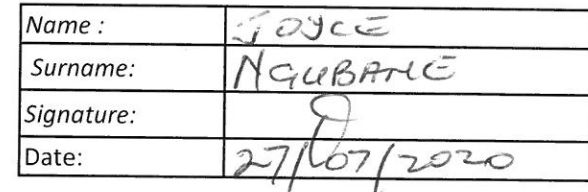 Name : JOYCE
Surname: NGUBANE
Signature:
Date: 27/07/2020